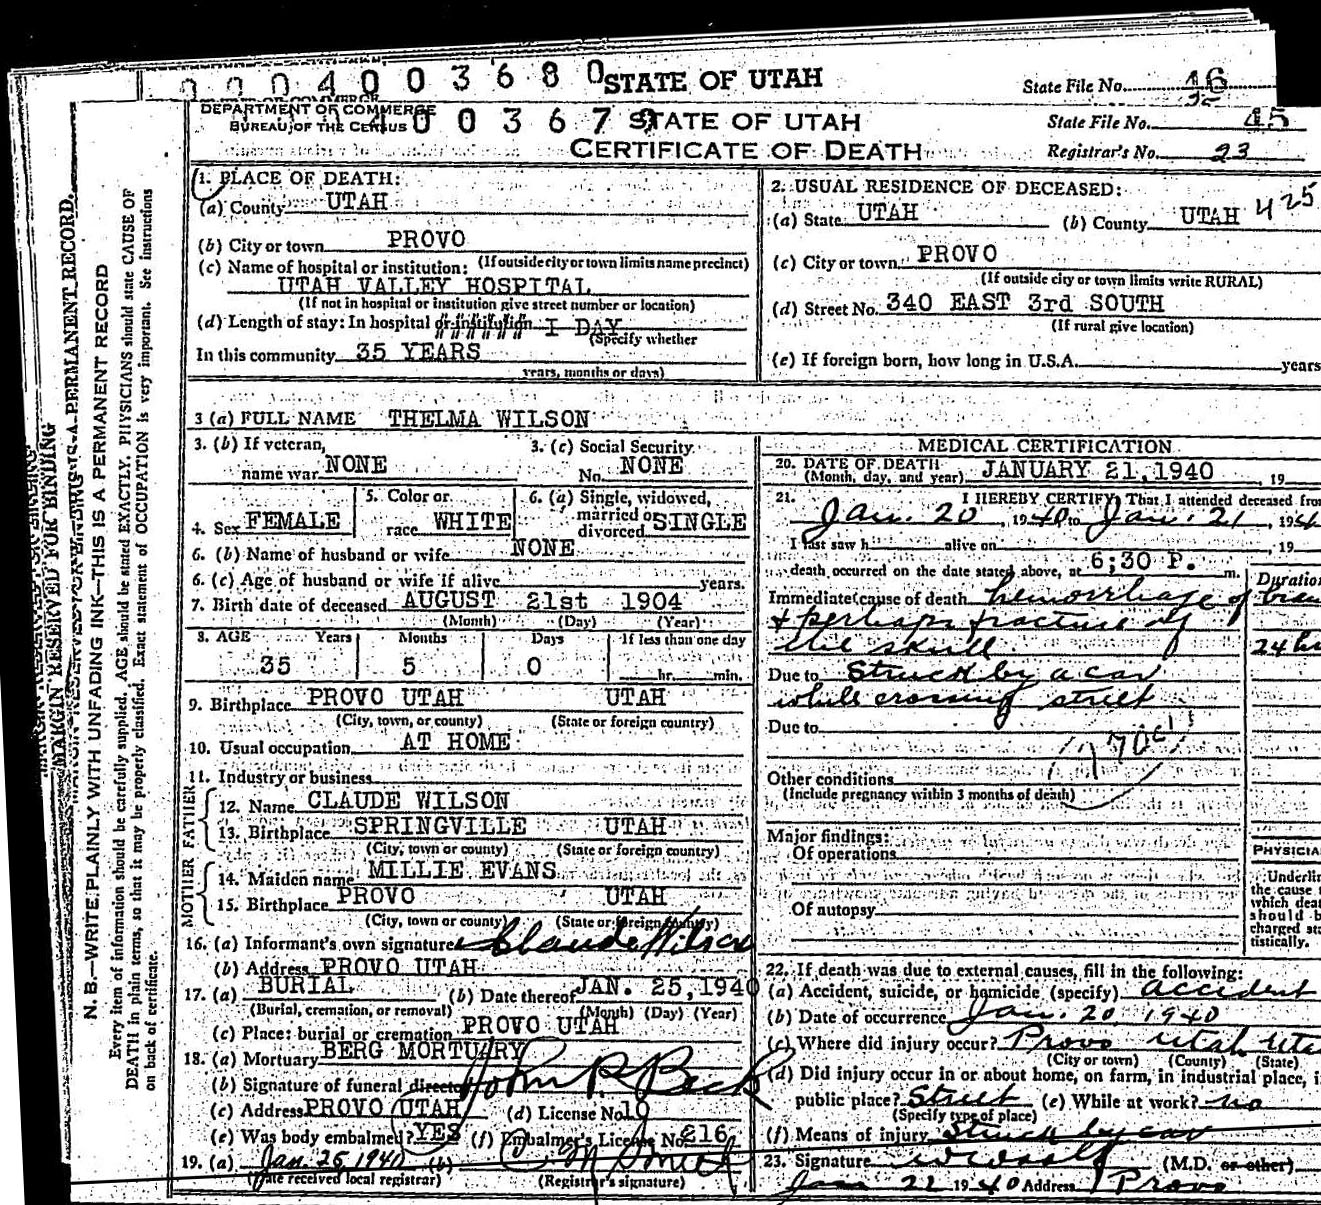 0004003680 STATE OF UTAH
State File No. 46
DEPARTMENT OF COMMERCE
BUREAU OF THE CENSUS
400367 STATE OF UTAH
State File No. 45
CERTIFICATE OF DEATH
Registrar's No. 23
1. PLACE OF DEATH:
(a) County UTAH
(b) City or town PROVO
(If outside city or town limits name precinct)
(c) Name of hospital or institution:
UTAH VALLEY HOSPITAL
(If not in hospital or institution give street number or location)
(d) Length of stay: In hospital or institution I DAY
(Specify whether
In this community 35 YEARS
years, months or days)
2. USUAL RESIDENCE OF DECEASED:
(a) State UTAH (b) County UTAH 425
(c) City or town PROVO
(If outside city or town limits write RURAL)
(d) Street No. 340 EAST 3rd SOUTH
(If rural give location)
(e) If foreign born, how long in U.S.A. years
3 (a) FULL NAME THELMA WILSON
3. (b) If veteran,
name war NONE
3. (c) Social Security
No. NONE
4. Sex FEMALE
5. Color or
race WHITE
6. (a) Single, widowed,
married or
divorced SINGLE
6. (b) Name of husband or wife NONE
6. (c) Age of husband or wife if alive years.
7. Birth date of deceased AUGUST 21st 1904
(Month) (Day) (Year)
8. AGE Years Months Days If less than one day
35 5 0 hr. min.
9. Birthplace PROVO UTAH UTAH
(City, town, or county) (State or foreign country)
10. Usual occupation AT HOME
11. Industry or business
FATHER
12. Name CLAUDE WILSON
13. Birthplace SPRINGVILLE UTAH
(City, town or county) (State or foreign country)
MOTHER
14. Maiden name MILLIE EVANS
15. Birthplace PROVO UTAH
(City, town or county) (State or foreign country)
16. (a) Informant's own signature Claude Wilson
(b) Address PROVO UTAH
17. (a) BURIAL (b) Date thereof JAN. 25, 1940
(Burial, cremation, or removal) (Month) (Day) (Year)
(c) Place: burial or cremation PROVO UTAH
18. (a) Mortuary BERG MORTUARY
(b) Signature of funeral director John R. Beck
(c) Address PROVO UTAH (d) License No. 19
(e) Was body embalmed? YES (f) Embalmer's License No. 216
19. (a) Jan. 25, 1940 (b)
(Date received local registrar) (Registrar's signature)
MEDICAL CERTIFICATION
20. DATE OF DEATH
(Month, day, and year) JANUARY 21, 1940, 19
21. I HEREBY CERTIFY, That I attended deceased from
Jan. 20, 1940 to Jan. 21, 194
I last saw h alive on , 19
death occurred on the date stated above, at 6;30 P. m.
Duration
Immediate cause of death hemorrhage of brain
& perhaps fracture of
the skull 24 h
Due to Struck by a car
while crossing street
Due to
170c
Other conditions
(Include pregnancy within 3 months of death)
Major findings:
Of operations
Of autopsy
PHYSICIA
Underlin
the cause
which deat
should b
charged sta
tistically.
22. If death was due to external causes, fill in the following:
(a) Accident, suicide, or homicide (specify) accident
(b) Date of occurrence Jan. 20, 1940
(c) Where did injury occur? Provo Utah Uta
(City or town) (County) (State)
(d) Did injury occur in or about home, on farm, in industrial place, i
public place? Street (e) While at work? no
(Specify type of place)
(f) Means of injury Struck by car
23. Signature (M.D. or other)
Jan 22 1940 Address Provo
MARGIN RESERVED FOR BINDING
N. B.—WRITE PLAINLY WITH UNFADING INK—THIS IS A PERMANENT RECORD
Every item of information should be carefully supplied. AGE should be stated EXACTLY. PHYSICIANS should state CAUSE OF
DEATH in plain terms, so that it may be properly classified. Exact statement of OCCUPATION is very important. See instructions
on back of certificate.